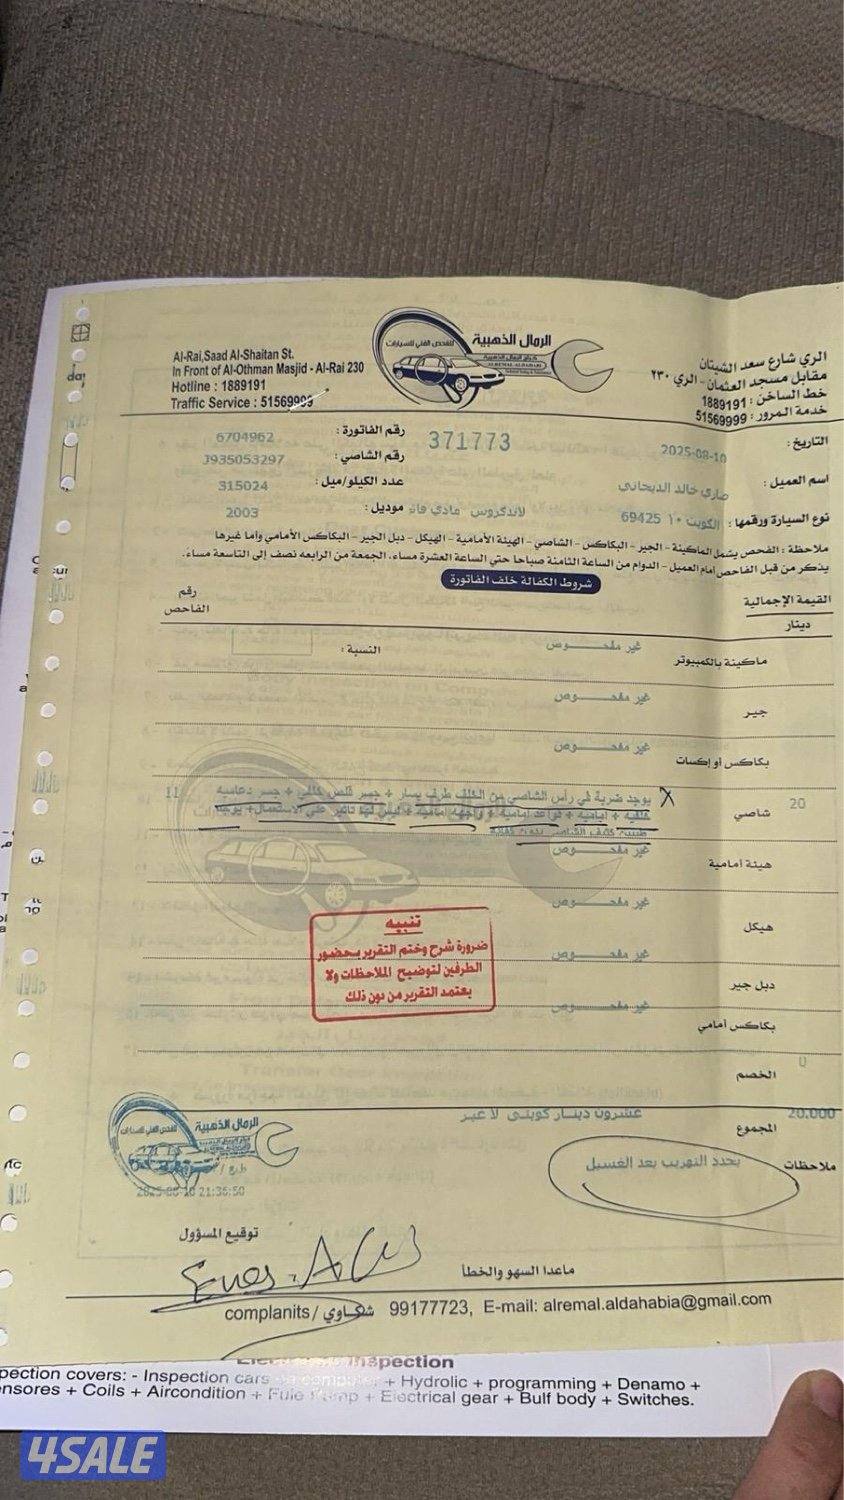 الرمال الذهبية
للفحص الفني للسيارات
كراج الرمال الذهبية
ALREMAL ALDAHABI
Al-Rai,Saad Al-Shaitan St.
In Front of Al-Othman Masjid - Al-Rai 230
Hotline : 1889191
Traffic Service : 51569999
الري شارع سعد الشيتان
مقابل مسجد العثمان - الري ٢٣٠
خط الساخن : 1889191
خدمة المرور : 51569999
التاريخ : 2025-08-10
371773
رقم الفاتورة : 6704962
رقم الشاصي : J935053297
اسم العميل : ضاري خالد الديحاني
عدد الكيلو/ميل : 315024
نوع السيارة ورقمها : الكويت ١٠ 69425 لاندكروس
موديل : 2003
ملاحظة : الفحص يشمل الماكينة - الجير - البكاكس - الشاصي - الهيئة الأمامية - الهيكل - دبل الجير - البكاكس الأمامي وأما غيرها
يذكر من قبل الفاحص أمام العميل - الدوام من الساعة الثامنة صباحا حتي الساعة العشرة مساء، الجمعة من الرابعه نصف إلى التاسعة مساء.
شروط الكفالة خلف الفاتورة
القيمة الإجمالية
دينار
رقم الفاحص
ماكينة بالكمبيوتر غير مفحـــوص النسبة :
جير غير مفحـــوص
بكاكس أو إكسات غير مفحـــوص
20 شاصي يوجد ضربة في رأس الشاصي من الخلف طرف يسار + جسر قلص خلفي + جسر دعاميه 11
خلفيه + أمامية + قواعد أمامية + واجهه أمامية + ليس لها تاثير على الاستعمال + يوجد
هيئة أمامية غير مفحـــوص
هيكل غير مفحـــوص
دبل جير غير مفحـــوص
بكاكس أمامي غير مفحـــوص
تنبيه
ضرورة شرح وختم التقرير بحضور
الطرفين لتوضيح الملاحظات ولا
يعتمد التقرير من دون ذلك
0 الخصم
20.000 المجموع عشرون دينـار كويتـي لا غير
ملاحظات يحدد التهريب بعد الغسيل
الرمال الذهبية
للفحص الفني للسيارات
2025-08-10 21:36:50
توقيع المسؤول
ماعدا السهو والخطأ
complanits / شكاوي 99177723, E-mail: alremal.aldahabia@gmail.com
Inspection
pection covers: - Inspection cars computer + Hydrolic + programming + Denamo +
ensores + Coils + Aircondition + Fule Pump + Electrical gear + Bulf body + Switches.
4SALE